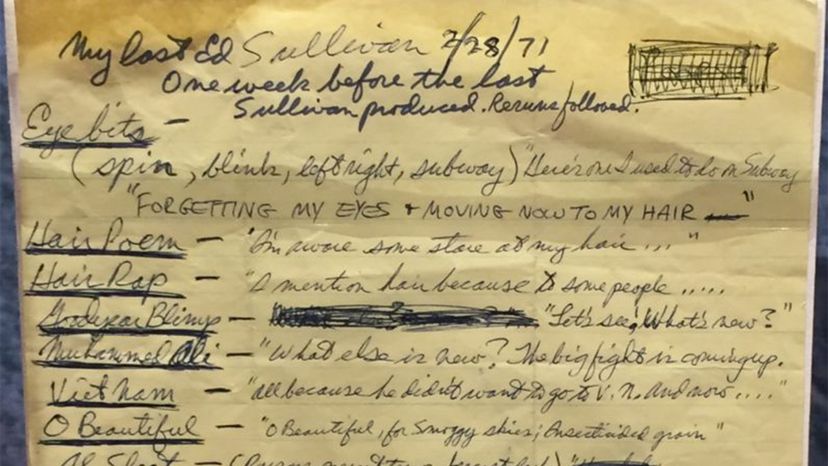 My last Ed Sullivan 2/28/71
One week before the last
Sullivan produced. Reruns followed.
Eye bits -
(spin, blink, left right, subway) "Here's one I used to do on Subway
"FORGETTING MY EYES + MOVING NOW TO MY HAIR"
Hair Poem - "I'm aware some stare at my hair..."
Hair Rap - "I mention hair because to some people.....
Goodyear Blimp - "Let's see! What's new?"
Muhammed Ali - "What else is new? The big fight is coming up.
Viet Nam - "all because he didn't want to go to V.N. and now...."
O Beautiful - "O Beautiful, for Smoggy skies; Insecticided grain"